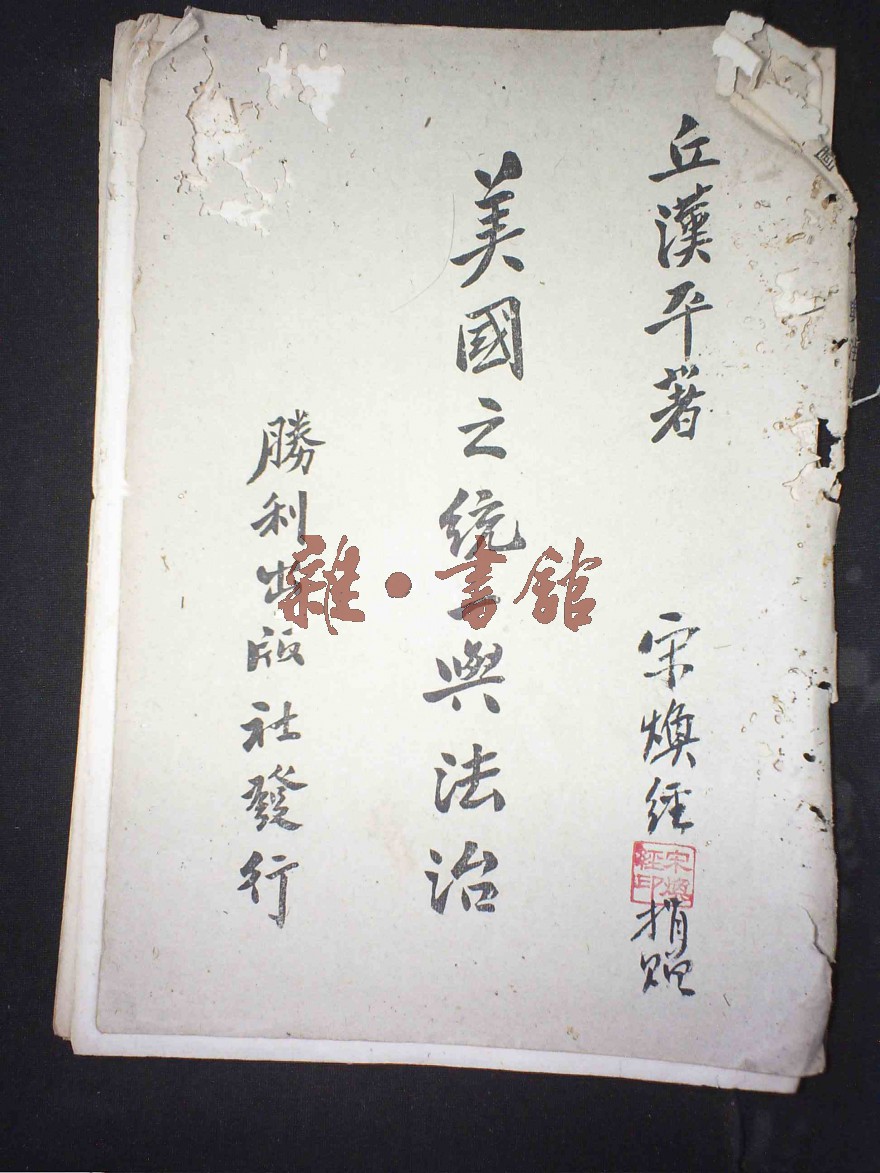 丘漢平著
宋煥經
宋煥經印
捐贈
美國之統一與法治
勝利出版社發行
雜·書館